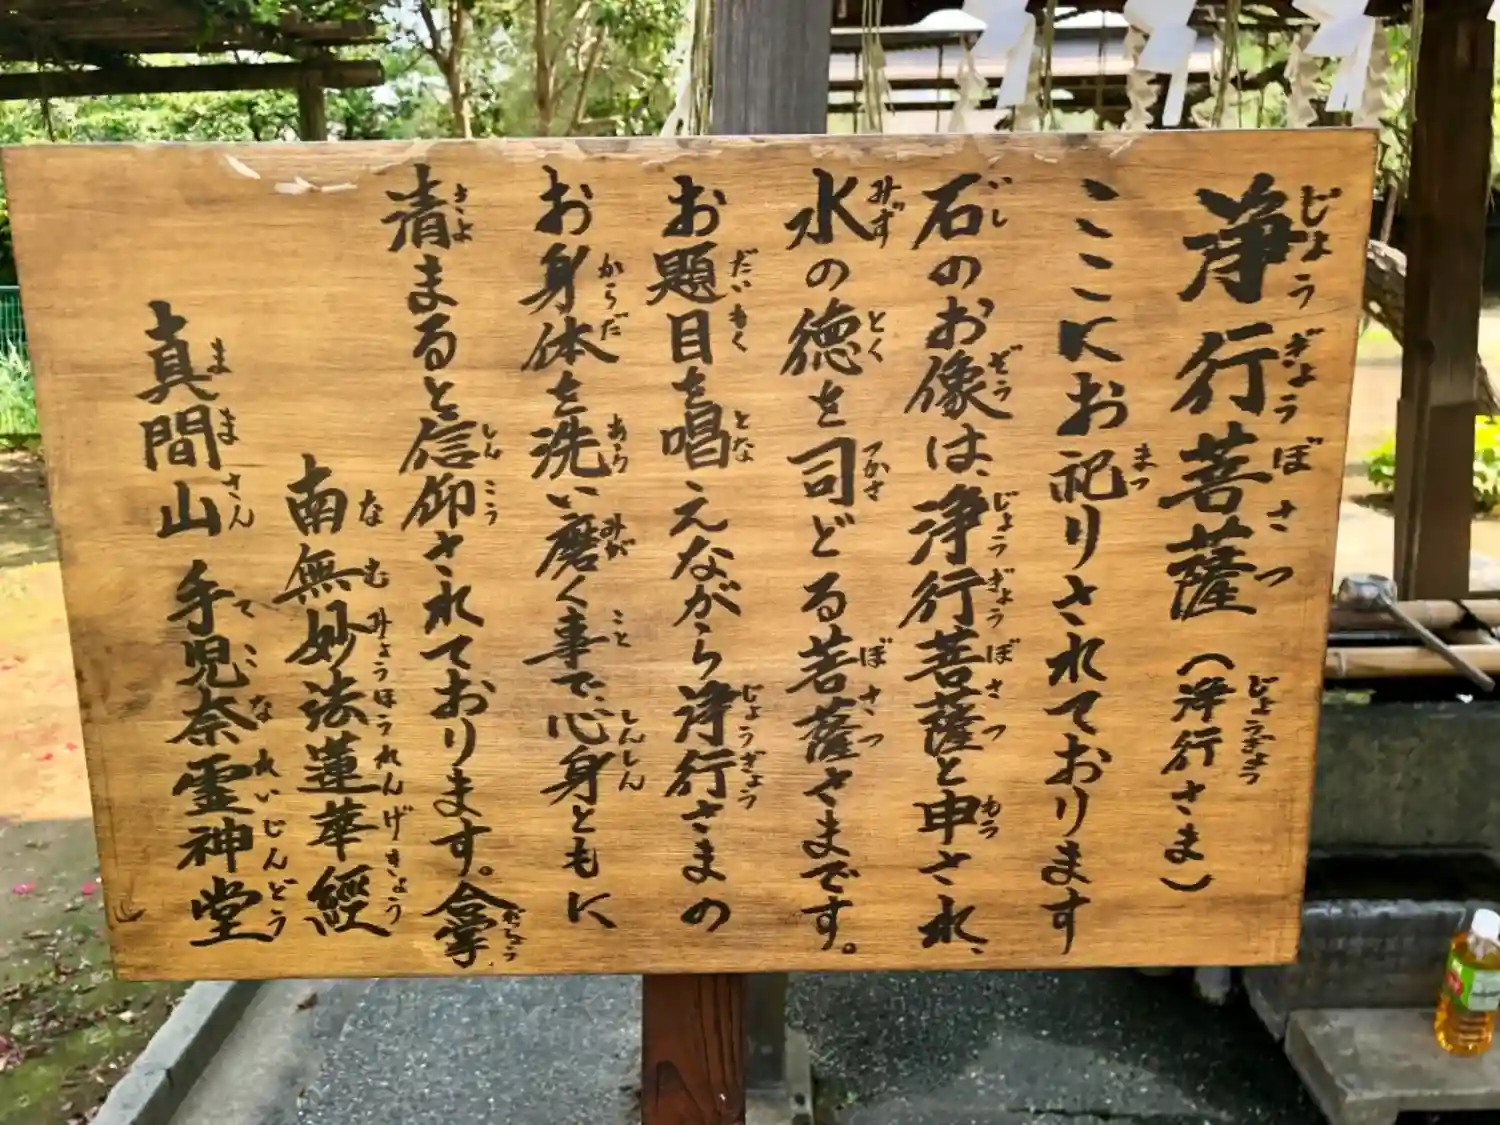 浄行菩薩（浄行さま）
ここにお祀りされております
石のお像は、浄行菩薩と申され、
水の徳を司どる菩薩さまです。
お題目を唱えながら浄行さまの
お身体を洗い磨く事で、心身ともに
清まると信仰されております。合掌
南無妙法蓮華經
真間山 手児奈霊神堂